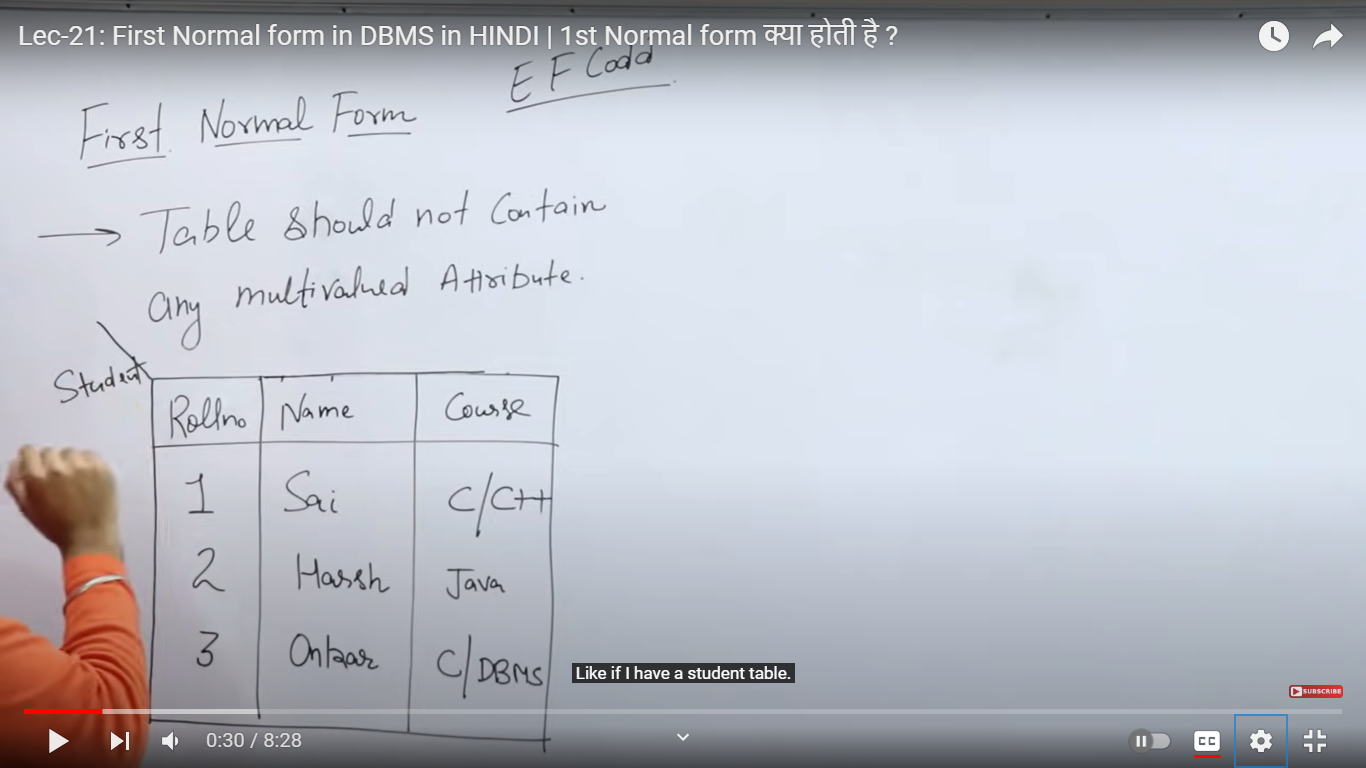 Lec-21: First Normal form in DBMS in HINDI | 1st Normal form क्या होती है ?
E F Codd
First Normal Form
Table should not Contain
any multivalued Attribute.
Student
Rollno Name Course
1 Sai C/C++
2 Harsh Java
3 Onkar C/DBMS
Like if I have a student table.
SUBSCRIBE
0:30 / 8:28
CC